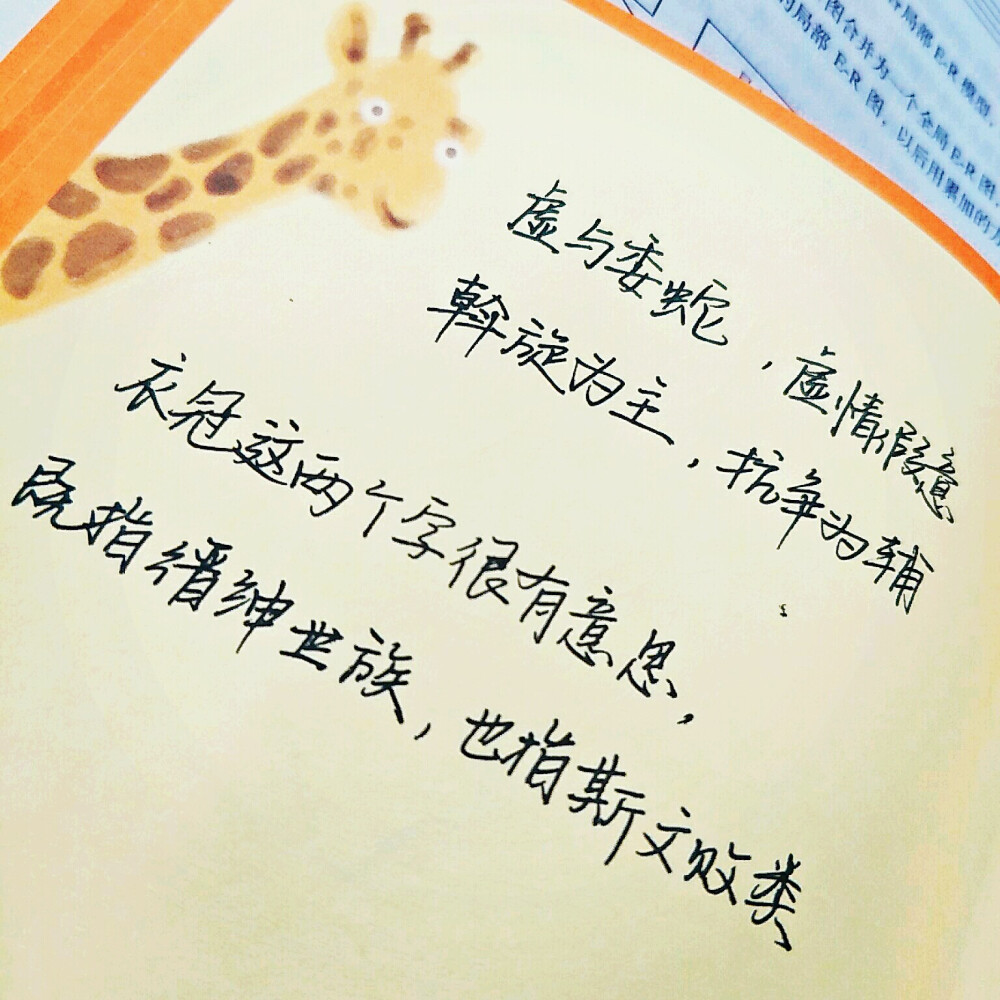 虚与委蛇，虚情假意
斡旋为主，抗争为辅
衣冠这两个字很有意思，
既指缙绅世族，也指斯文败类
局部E-R模型，
图合并为一个全局E-R图，
的局部E-R图，以后用累加的方